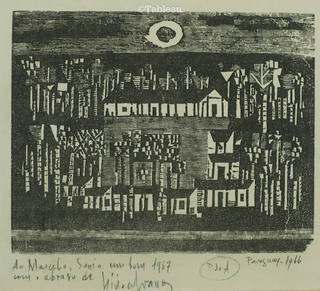 ©Tableau
Ao Marcelo, Sonia um bom 1967
com o abraço de
P.d.A
Paraguay - 1966